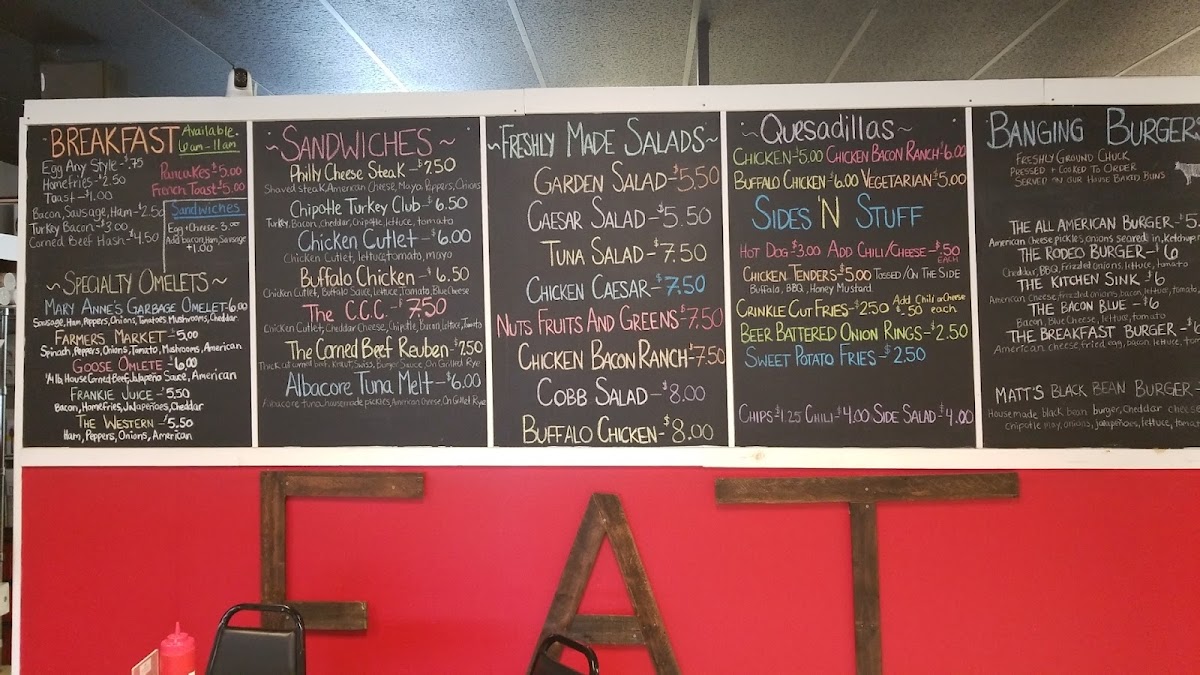 BREAKFAST Available
6am-11am
Egg Any Style -$.75
Homefries -$2.50
Toast -$1.00
Bacon, Sausage, Ham -$2.50
Turkey Bacon -$3.00
Corned Beef Hash -$4.50
Pancakes -$5.00
French Toast -$5.00
Sandwiches
Egg + Cheese - 3.00
Add bacon, Ham, Sausage
+1.00
~SPECIALTY OMELETS~
MARY ANNE'S GARBAGE OMELET-6.00
Sausage, Ham, Peppers, Onions, Tomatoes, Mushrooms, Cheddar
FARMERS MARKET -$5.00
Spinach, Peppers, Onions, Tomato, Mushrooms, American
GOOSE OMLETE -$6.00
1/4 lb, House Corned Beef, Jalapeño Sauce, American
FRANKIE JUICE -$5.50
Bacon, Homefries, Jalapeñoes, Cheddar
THE WESTERN -$5.50
Ham, Peppers, Onions, American
~SANDWICHES~
Philly Cheese Steak -$7.50
Shaved steak, American Cheese, Mayo, Peppers, Onions
Chipotle Turkey Club -$6.50
Turkey, Bacon, cheddar, Chipotle, lettuce, tomato
Chicken Cutlet -$6.00
Chicken Cutlet, lettuce, tomato, mayo
Buffalo Chicken -$6.50
Chicken Cutlet, Buffalo Sauce, Lettuce, Tomato, Blue Cheese
The C.C.C. -$7.50
Chicken Cutlet, Cheddar Cheese, Chipotle, Bacon, lettuce, Tomato
The Corned Beef Reuben -$7.50
Thick cut corned beef, Kraut, Swiss, Burger Sauce, On Grilled Rye
Albacore Tuna Melt -$6.00
Albacore tuna, homemade pickles, American Cheese, On Grilled Rye
~FRESHLY MADE SALADS~
GARDEN SALAD -$5.50
CAESAR SALAD -$5.50
TUNA SALAD -$7.50
CHICKEN CAESAR -$7.50
NUTS FRUITS AND GREENS -$7.50
CHICKEN BACON RANCH -$7.50
COBB SALAD -$8.00
BUFFALO CHICKEN -$8.00
~Quesadillas~
CHICKEN -$5.00 CHICKEN BACON RANCH -$6.00
BUFFALO CHICKEN -$6.00 VEGETARIAN -$5.00
SIDES 'N STUFF
HOT DOG -$3.00 ADD CHILI/CHEESE -$.50
EACH
CHICKEN TENDERS -$5.00 TOSSED/ON THE SIDE
Buffalo, BBQ, Honey Mustard
CRINKLE CUT FRIES -$2.50 Add Chili or Cheese
$.50 each
BEER BATTERED ONION RINGS -$2.50
SWEET POTATO FRIES -$2.50
CHIPS -$1.25 CHILI -$4.00 SIDE SALAD -$4.00
BANGING BURGERS
FRESHLY GROUND CHUCK
PRESSED + COOKED TO ORDER
SERVED ON OUR HOUSE BAKED BUNS
THE ALL AMERICAN BURGER -$5.
American Cheese, pickles, onions seared in, Ketchup
THE RODEO BURGER -$6
Cheddar, BBQ, Frizzled onions, lettuce, tomato
THE KITCHEN SINK -$6
American Cheese, frizzled onions, bacon, lettuce, tomato,
THE BACON BLUE -$6
Bacon, Blue Cheese, lettuce, tomato
THE BREAKFAST BURGER -$
American cheese, fried egg, bacon, lettuce,
MATT'S BLACK BEAN BURGER
House made black bean burger, Cheddar cheese
Chipotle mayo, onions, jalapeñoes, lettuce,
EAT